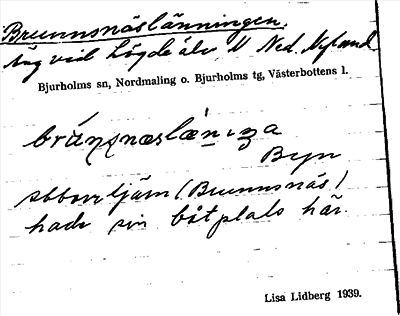 Brunnsnäslänningen.
äng vid Lögdeälv N Ned. Nyland
Bjurholms sn, Nordmaling o. Bjurholms tg, Västerbottens l.
Byn
Abborrtjärn (Brunnsnäs)
hade sin båtplats här.
Lisa Lidberg 1939.